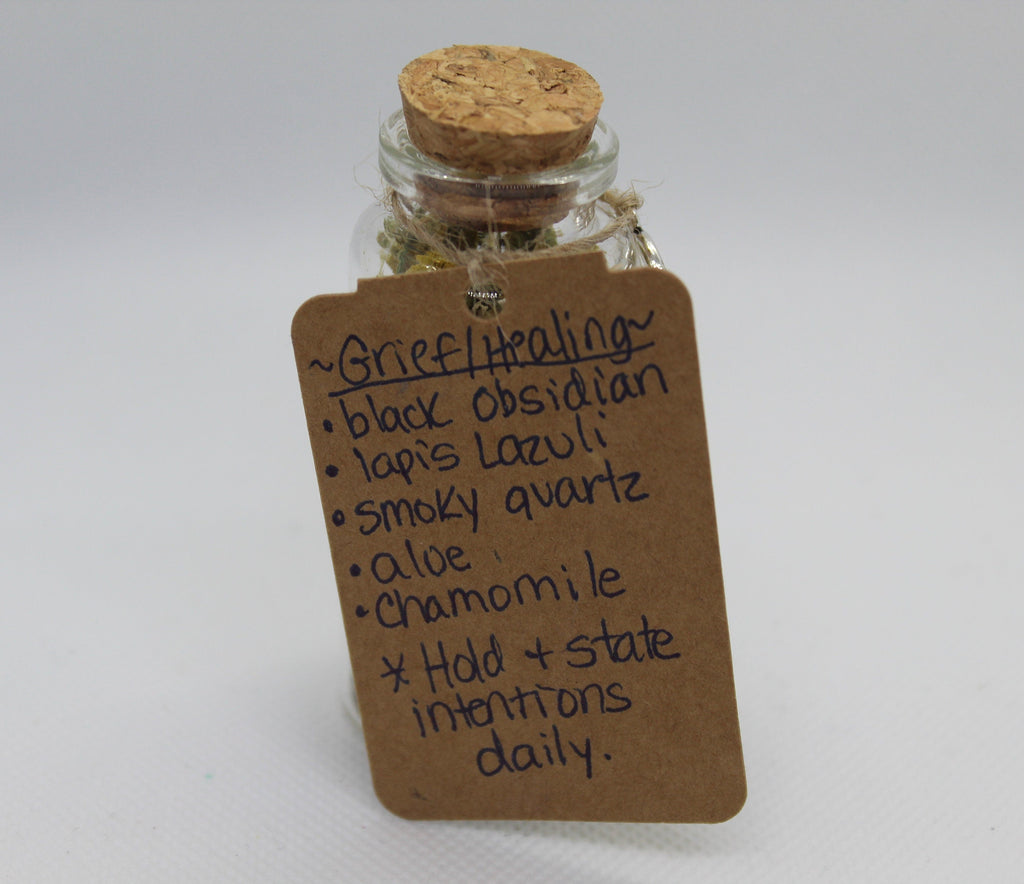 ~Grief/Healing~
• black obsidian
• lapis Lazuli
• smoky quartz
• aloe
• Chamomile
* Hold + state
intentions
daily.